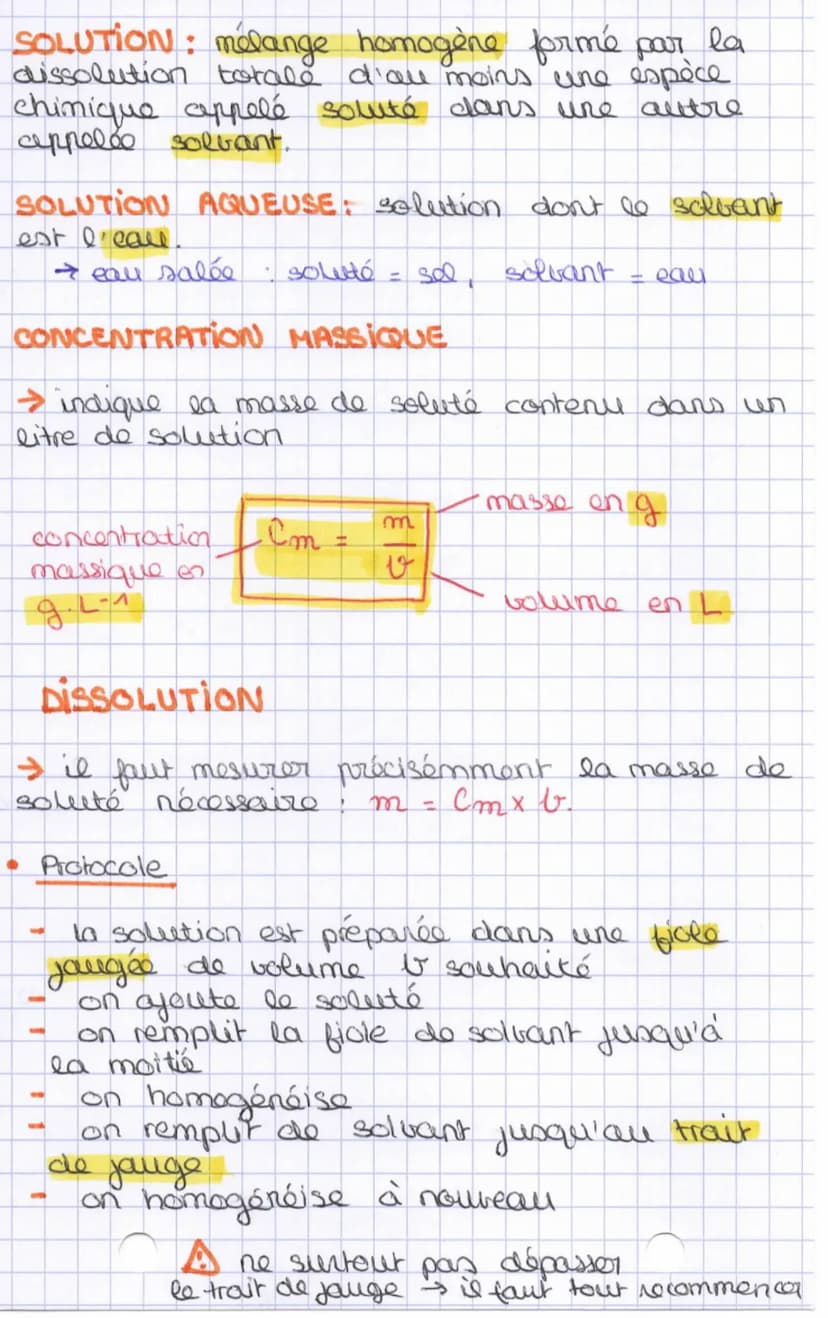 SOLUTION : mélange homogène formé par la
dissolution totale d'au moins une espèce
chimique appelé soluté dans une autre
appelée solvant.
SOLUTION AQUEUSE : solution dont le solvant
est l'eau.
→ eau salée : soluté = sel, solvant = eau
CONCENTRATION MASSIQUE
→ indique la masse de soluté contenu dans un
litre de solution
masse en g
concentration
massique en
g.L-1
Cm = m/V
volume en L
DISSOLUTION
→ il faut mesurer précisémment la masse de
soluté nécessaire : m = Cm x V.
• Protocole
- la solution est préparée dans une fiole
jaugée de volume V souhaité
- on ajoute le soluté
- on remplit la fiole de solvant jusqu'à
la moitié
- on homogénéise
- on remplit de solvant jusqu'au trait
de jauge
- on homogénéise à nouveau
⚠ ne surtout pas dépasser
le trait de jauge → il faut tout recommencer